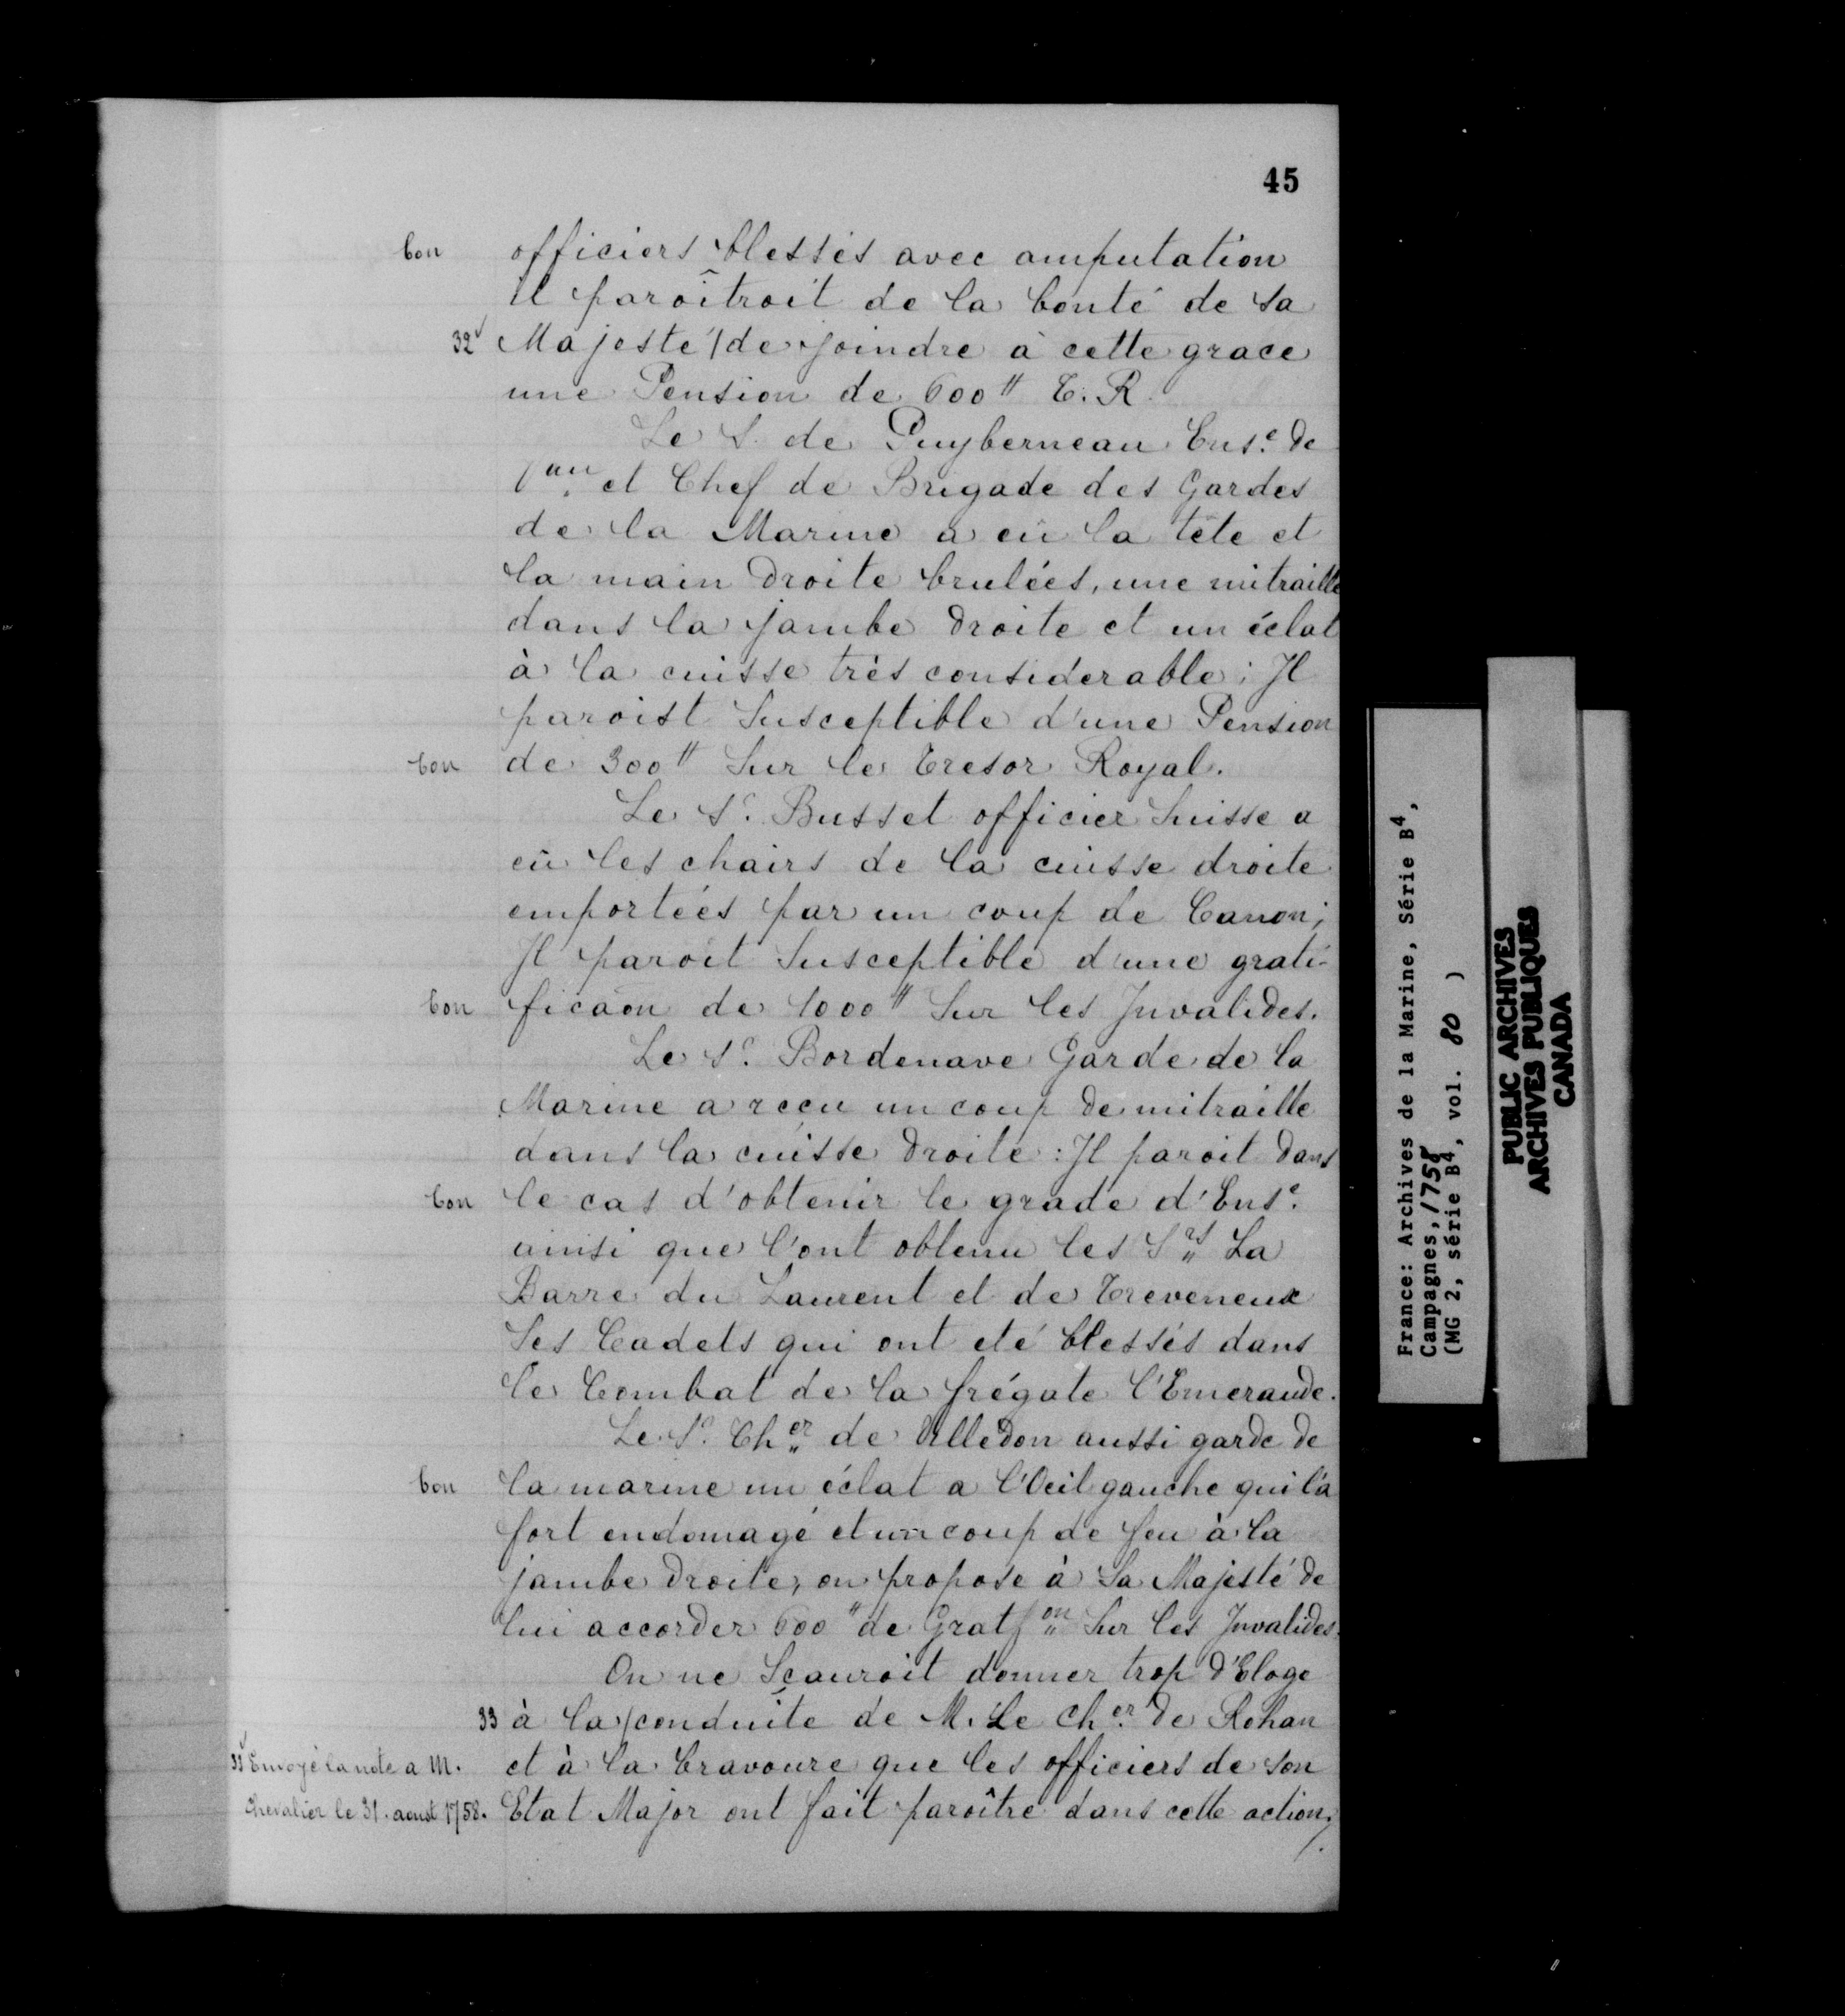 45
bon officiers blessés avec amputation
il paroîtroit de la bonté de sa
32 Majesté / de joindre à cette grace
une Pension de 600# T. R.
Le S. de Puyberneau Ens.e de
Vau. et Chef de Brigade des Gardes
de la Marine a eû la tête et
la main droite brulées, une mitraille
dans la jambe droite et un éclat
à la cuisse très considerable; Il
paroist Susceptible d'une Pension
bon de 300# Sur le Tresor Royal.
Le Sr. Busset officier Suisse a
eû les chairs de la cuisse droite
emportées par un coup de Canon;
Il paroit Susceptible d'une grati-
bon ficaõn de 1000# Sur les Invalides.
Le Sr. Bordenave Garde de la
Marine a reçu un coup de mitraille
dans la cuisse droite: Il paroit dans
bon le cas d'obtenir le grade d'Ens.e
ainsi que l'ont obtenu les Srs La
Barre du Laurent et de Treveneuc
Ses Cadets qui ont eté blessés dans
le Combat de la frégate l'Emeraude.
Le Sr. Cher de Villedon aussi garde de
bon la marine un éclat a l'Oeil gauche qui l'a
fort endomagé et un coup de feu à la
jambe droite, on propose à Sa Majesté de
lui accorder 600# de Gratfon Sur les Invalides.
On ne Sçauroit donner trop d'Eloge
33 à la / conduite de M. Le cher. de Rohan
33 Envoyé la note a M. et à la bravoure que les officiers de son
Chevalier le 31. aoust 1758. Etat Major ont fait paroître dans cette action;
France: Archives de la Marine, Série B4,
Campagnes, 1758
(MG 2, série B4, vol. 80 )
PUBLIC ARCHIVES
ARCHIVES PUBLIQUES
CANADA